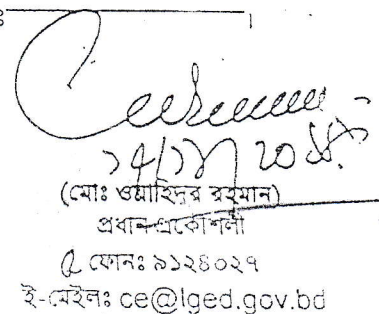 (মোঃ ওয়াহিদুর রহমান)
প্রধান প্রকৌশলী
ফোনঃ ৯১২৪০২৭
ই-মেইলঃ ce@lged.gov.bd